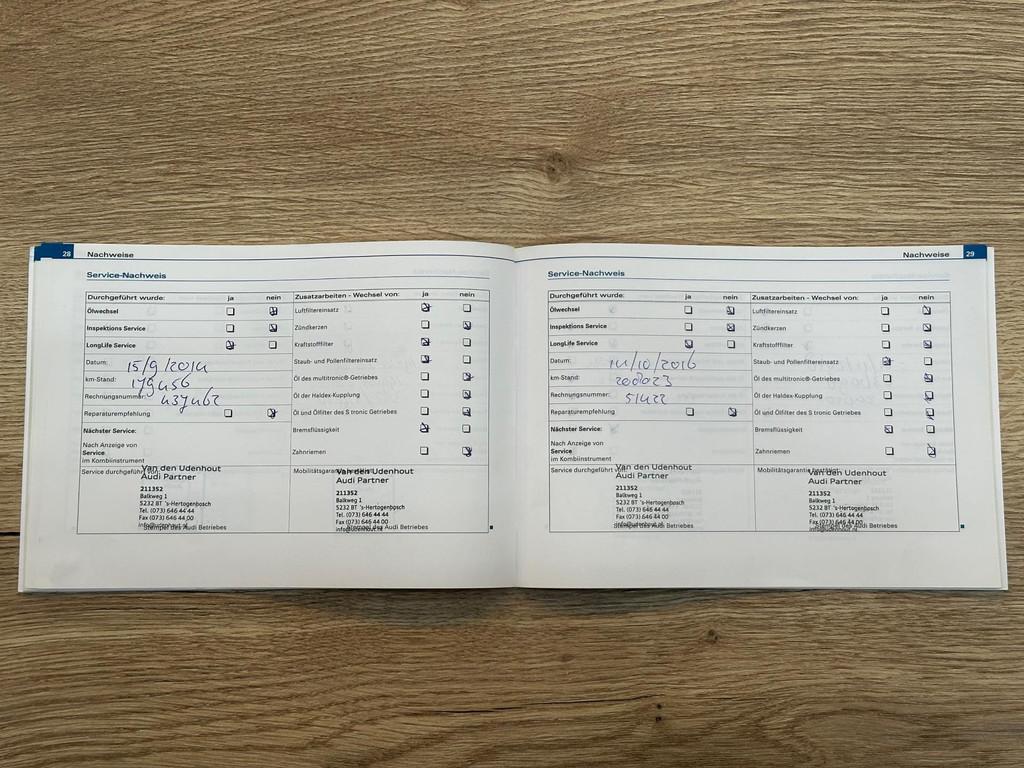 28 Nachweise
Service-Nachweis
Durchgeführt wurde: ja nein
Ölwechsel
Inspektions Service
LongLife Service
Datum: 15/9/2014
km-Stand: 179456
Rechnungsnummer: 437462
Reparaturempfehlung
Nächster Service:
Nach Anzeige von
Service
im Kombiinstrument
Zusatzarbeiten - Wechsel von: ja nein
Luftfiltereinsatz
Zündkerzen
Kraftstofffilter
Staub- und Pollenfiltereinsatz
Öl des multitronic®-Getriebes
Öl der Haldex-Kupplung
Öl und Ölfilter des S tronic Getriebes
Bremsflüssigkeit
Zahnriemen
Service durchgeführt von:
Van den Udenhout
Audi Partner
211352
Balkweg 1
5232 BT 's-Hertogenbosch
Tel. (073) 646 44 44
Fax (073) 646 44 00
info@udenhout.nl
Stempel des Audi Betriebes
Mobilitätsgarantie bestätigt:
Van den Udenhout
Audi Partner
211352
Balkweg 1
5232 BT 's-Hertogenbosch
Tel. (073) 646 44 44
Fax (073) 646 44 00
info@udenhout.nl
Stempel des Audi Betriebes
Nachweise 29
Service-Nachweis
Durchgeführt wurde: ja nein
Ölwechsel
Inspektions Service
LongLife Service
Datum: 14/10/2016
km-Stand: 200023
Rechnungsnummer: 51422
Reparaturempfehlung
Nächster Service:
Nach Anzeige von
Service
im Kombiinstrument
Zusatzarbeiten - Wechsel von: ja nein
Luftfiltereinsatz
Zündkerzen
Kraftstofffilter
Staub- und Pollenfiltereinsatz
Öl des multitronic®-Getriebes
Öl der Haldex-Kupplung
Öl und Ölfilter des S tronic Getriebes
Bremsflüssigkeit
Zahnriemen
Service durchgeführt von:
Van den Udenhout
Audi Partner
211352
Balkweg 1
5232 BT 's-Hertogenbosch
Tel. (073) 646 44 44
Fax (073) 646 44 00
info@udenhout.nl
Stempel des Audi Betriebes
Mobilitätsgarantie bestätigt:
Van den Udenhout
Audi Partner
211352
Balkweg 1
5232 BT 's-Hertogenbosch
Tel. (073) 646 44 44
Fax (073) 646 44 00
info@udenhout.nl
Stempel des Audi Betriebes